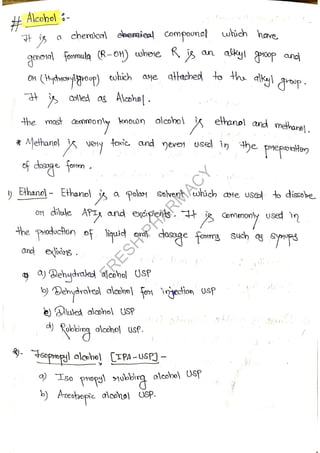 # Alcohol :-
It is a chemical chemical compound which have
general formula (R-OH) where R is an alkyl group and
OH (Hydroxylgroup) which are attached to the alkyl group.
It is called as Alcohol.
the most commonly known alcohol is ethanol and methanol.
* Methanol is very toxic and never used in the preparation
of dosage form.
1) Ethanol - Ethanol is a polar solvent which are used to dissolve
on dilute APIs and excipients. It is commonly used in
the production of liquid oral dosage forms such as syrups
and elixirs.
a) Dehydrated alcohol USP
b) Dehydrated alcohol for injection USP
c) Diluted alcohol USP
d) Rubbing alcohol USP.
2. Isopropyl alcohol [IPA-USP] -
a) Iso propyl rubbing alcohol USP
b) Azeotropic alcohol USP.
FRESH PHARMACY